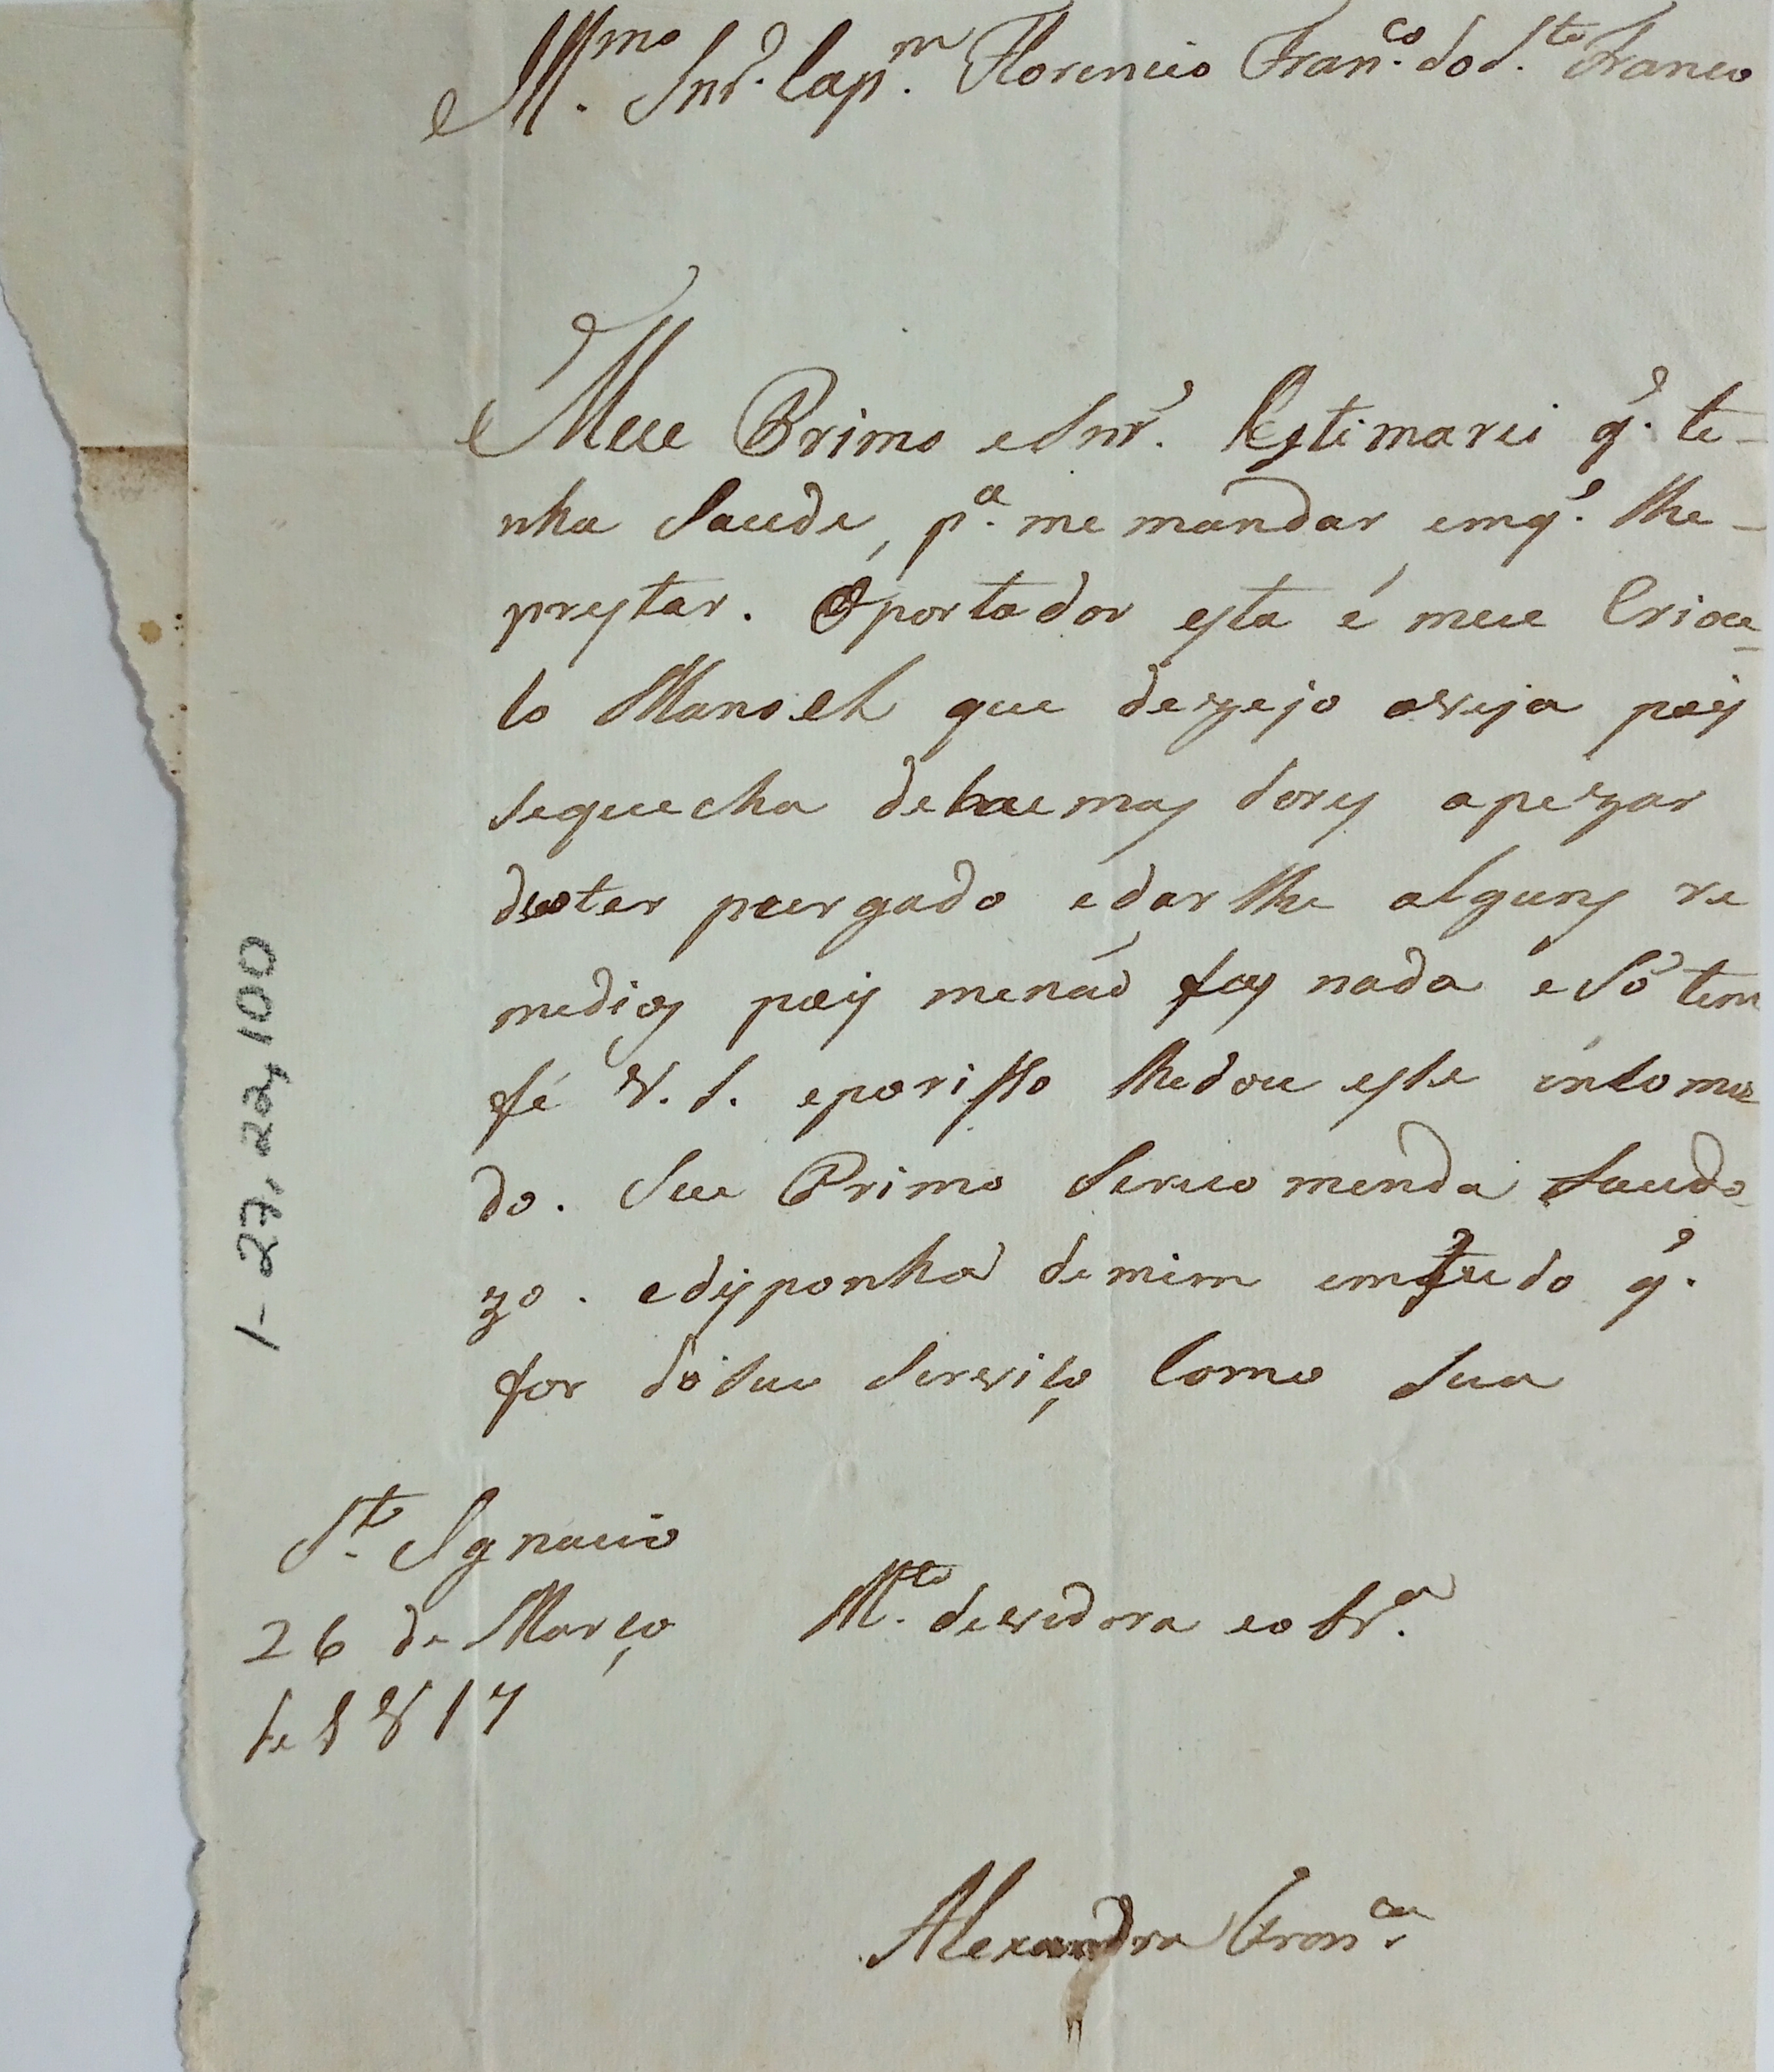 Illmo. Snr. Capm. Florencio Franco. do S.to Franco
Meu Primo eSnr. Estimarei q. te-
nha Saude, pa. me mandar emq. lhe-
prestar. Oportador esta é meu Criou-
lo Manoel que dezejo oveja pois
sequecha dehumas dores apezar
deoter purgado edarlhe alguns re
medios pois menaó faz nada esó tem
fé V. S. eporisso lhedou este incomo
do. Seu Primo Serecomenda Saudo
zo. edisponha demim emtudo q.
for doSeu Serviço Como Sua
Sto. Ignacio
26 de Março
de 1817
Mto. devedora eobra.
Alexandra Franca.
1-27,22,100